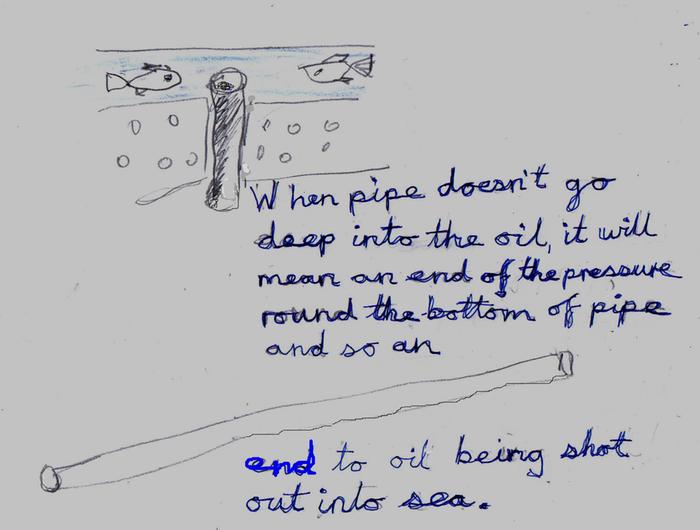 When pipe doesn't go
deep into the oil, it will
mean an end of the pressure
round the bottom of pipe
and so an
end to oil being shot
out into sea.